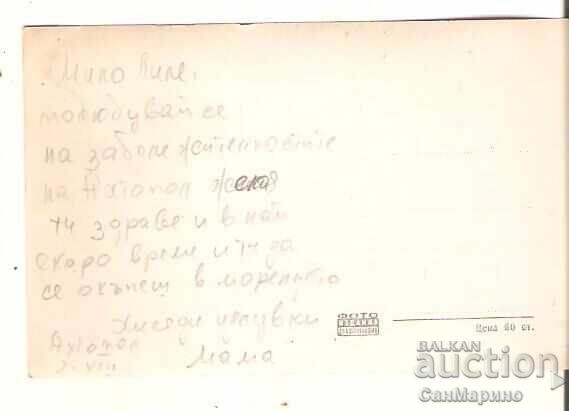 Мило Пиле,
полюбувай се
на забележителностите
на Ахтопол
ти здраве и в най
скоро време и ти да
се окъпеш в морето
Хиляди целувки
Мама
Ахтопол
VIII
ФОТО
Цена 60 ст.
BALKAN
auction
СанМарино